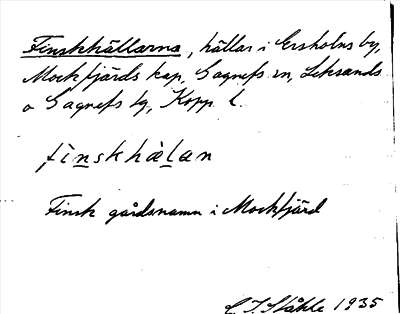 Finskhällarna, hällar i Ersholns by,
Mockfjärds kap, Gagnefs sn, Leksands
o Gagnefs tg, Kopp. l.
fìnskhàlan
Finsk gårdsnamn i Mockfjärd
C. I. Ståhle 1935